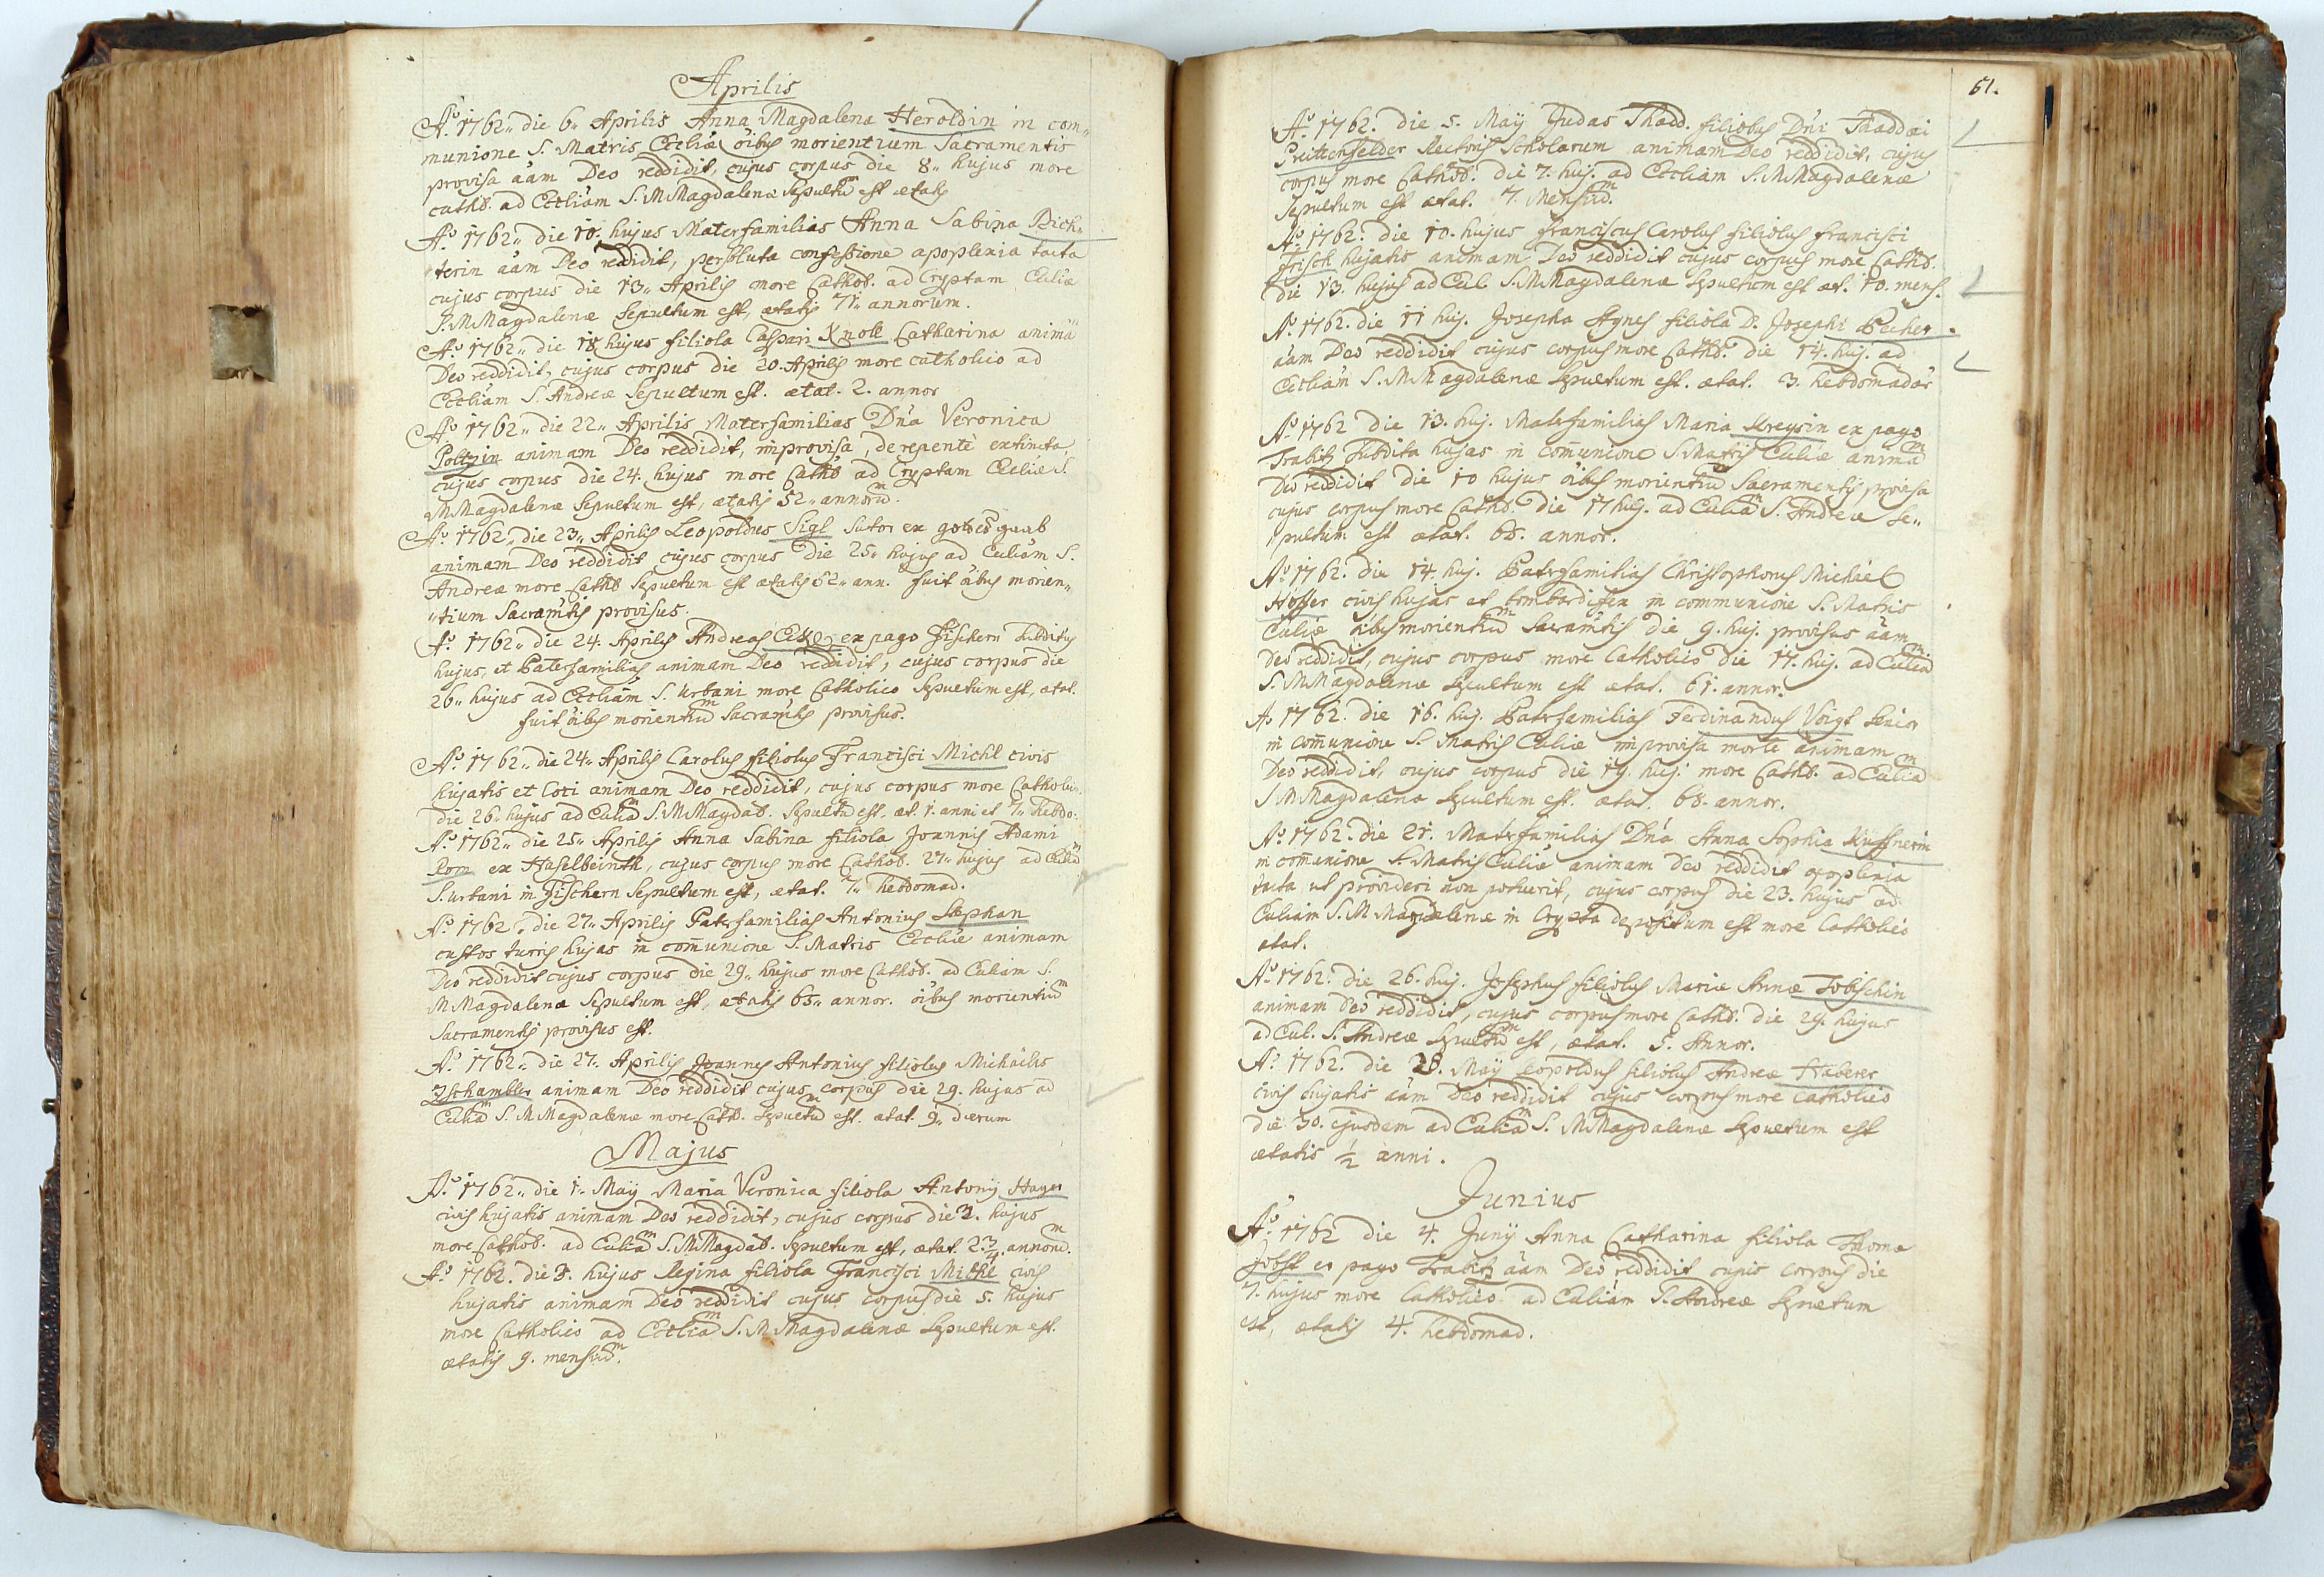 Aprilis
Aº 1762„ die 6„ Aprilis Anna Magdalena Heroldin in com„
munione S. Matris Eccliæ oibus morientium Sacramentis
provisa aam Deo reddidit, cujus corpus die 8„ hujus more
cathol. ad Eccliam S. M Magdalena Sepultum est ætatis
Aº 1762„ die 10. hujus Materfamilias Anna Sabina Rich„
terin aam Deo reddidit, persoluta confessione apoplexia tacta
cujus corpus die 13„ Aprilis more Cathol. ad Cryptam Eccliæ
S. M Magdalenæ Sepultum est, ætatis 71„ annorum.
Aº 1762„ die 18. hujus filiola Caspari Knoll Catharina animā
Deo reddidit, cujus corpus die 20. Aprilis more catholico ad
Eccliam S. Andreæ Sepultum est. ætat. 2. annor
Aº 1762„ die 22„ Aprilis Materfamilias Dña Veronica
Poltzin animam Deo reddidit, improvisa, derepentè extincta,
cujus corpus die 24. hujus more Cathol ad Cryptam Eccliæ S.
M Magdalenæ Sepultum est, ætatis 52„ annorum.
Aº 1762„ die 23„ Aprilis Leopoldus Sigl Sutor ex gottesgaab
animam Deo reddidit cujus corpus die 25„ hujus ad Eccliam S.
Andreæ more Cathol Sepultum est ætatis 52„ ann. fuit oibus morien„
„tium Sacramtis provisus.
Aº 1762„ die 24. Aprilis Andreas ex pago Fischern Subditus
hujus, et Paterfamilias animam Deo reddidit, cujus corpus die
26„ hujus ad Eccliam S. Urbani more Catholico Sepultum est, ætat.
fuit oibus morientium Sacramtis provisus.
Aº 1762„ die 24„ Aprilis Carolus filiolus Francisci Michl civis
hujatis et loci animam Deo reddidit, cujus corpus more Catholico.
die 26. hujus ad Eccliam S. M Magdal. Sepultum est, æt. 1. anni et 7„ hebdo:
Aº 1762„ die 25„ Aprilis Anna Sabina filiola Joannis Adami
Korn ex Haselbeinth, cujus corpus more Cathol. 27„ hujus ad Eccliam
S. Urbani in Fischern Sepultum est, ætat. 7„ hebdomad.
Aº 1762„ die 27„ Aprilis Paterfamilias Antonius Stephan
custos turris hujas in communione S. Matris Eccliæ animam
Deo reddidit cujus corpus die 29„ hujus more Cathol. ad Eccliam S.
M Magdalenæ Sepultum est, ætatis 65„ annor. oibus morientium
Sacramentis provisus est.
Aº 1762„ die 27. Aprilis Joannes Antonius filiolus Michaëlis
Tschambler animam Deo reddidit cujus corpus die 29. hujus ad
Eccliam S. M Magdalenæ more Cathol. Sepultum est. ætat. 9„ dierum
Majus
Aº 1762„ die 1. Maÿ Maria Veronica filiola Antonÿ Hager
civis hujatis animam Deo reddidit, cujus corpus die 3. hujus
more Cathol. ad Eccliam S. M Magdal. Sepultum est, ætat. 2 3/4. annorum.
Aº 1762. die 3. hujus Regina filiola Francisci Michl civis
hujatis animam Deo reddidit cujus corpus die 5. hujus
more Catholico ad Eccliam S. M Magdalenæ Sepultum est.
ætatis 9. mensium.
61.
Aº 1762. die 5. Maÿ Judas Thadd. filiolus Dñi Thaddæi
Preittenfelder Rectoris Scholarum animam Deo reddidit, cujus
corpus more Cathol. die 7. huj. ad Eccliam S. M Magdalenæ
Sepultum est ætat. 7. Mensium.
Aº 1762. die 10. hujus Franciscus Carolus filiolus Francisci
Frisch hujatis animam Deo reddidit cujus corpus more Cathol.
die 13. hujus ad Eccl. S. M Magdalenæ Sepultum est æt. 10. mens.
Aº 1762. die 11 huj. Josepha Agnes filiola D. Josephi Becher.
aam Deo reddidit cujus corpus more Cathol. die 14. huj. ad
Eccliam S. M Magdalenæ Sepultum est. ætat. 3. hebdomadar
Aº 1762 die 13. huj. Materfamilias Maria Kreysin ex pago
Trabitz Subdita hujas in comunione S. Matris Eccliæ animam
Deo reddidit die 10 hujus oibus morientium Sacramentis provisa
cujus corpus more Cathol. die 17 huj. ad Eccliam S. Andreæ Se„
pultum est ætat. 68. annor.
Aº 1762. die 14. huj. Paterfamilias Christophorus Michaël
Hosser civis hujas et bombardifex in communione S. Matris
Eccliæ oibus morientium Sacramtis die 9. huj. provisus aam
Deo reddidit, cujus corpus more Catholico die 17. huj. ad Eccliam
S. M Magdalenæ Sepultum est ætat. 61. annor.
Aº 1762. die 16. huj. Paterfamilias Ferdinandus Voigt Senior
in comunione S. Matris Eccliæ improvisa morte animam
Deo reddidit, cujus corpus die 19. huj. more Cathol. ad Eccliam
S M Magdalena Sepultum est. ætat. 68. annor.
Aº 1762. die 21. Materfamilias Dña Anna Sophia Kuffnerin
in comunione S. Matris Eccliæ animam Deo reddidit apoplexia
tacta ut provideri non potuerit, cujus corpus die 23. hujus ad
Eccliam S. M Magdalenæ in Crypta depositum est more Catholico
ætat.
Aº 1762. die 26. huj. Josephus filiolus Mariæ Annæ Tobischin
animam Deo reddidit, cujus corpus more Cathol. die 29. hujus
ad Eccl. S. Andreæ Sepultum est, ætat. 5. Annor.
Aº 1762. die 28. Maÿ Leopoldus filiolus Andreæ Haberer
civis hujatis aam Deo reddidit cujus corpus more catholico
die 30. ejusdem ad Eccliam S. M Magdalenæ Sepultum est
ætatis 1/2 anni.
Junius
Aº 1762 die 4. Junÿ Anna Catharina filiola Thomæ
Jobst ex pago Trabitz aam Deo reddidit cujus corpus die
7. hujus more Catholico ad Eccliam S. Andreæ Sepultum
est, ætatis 4. hebdomad.